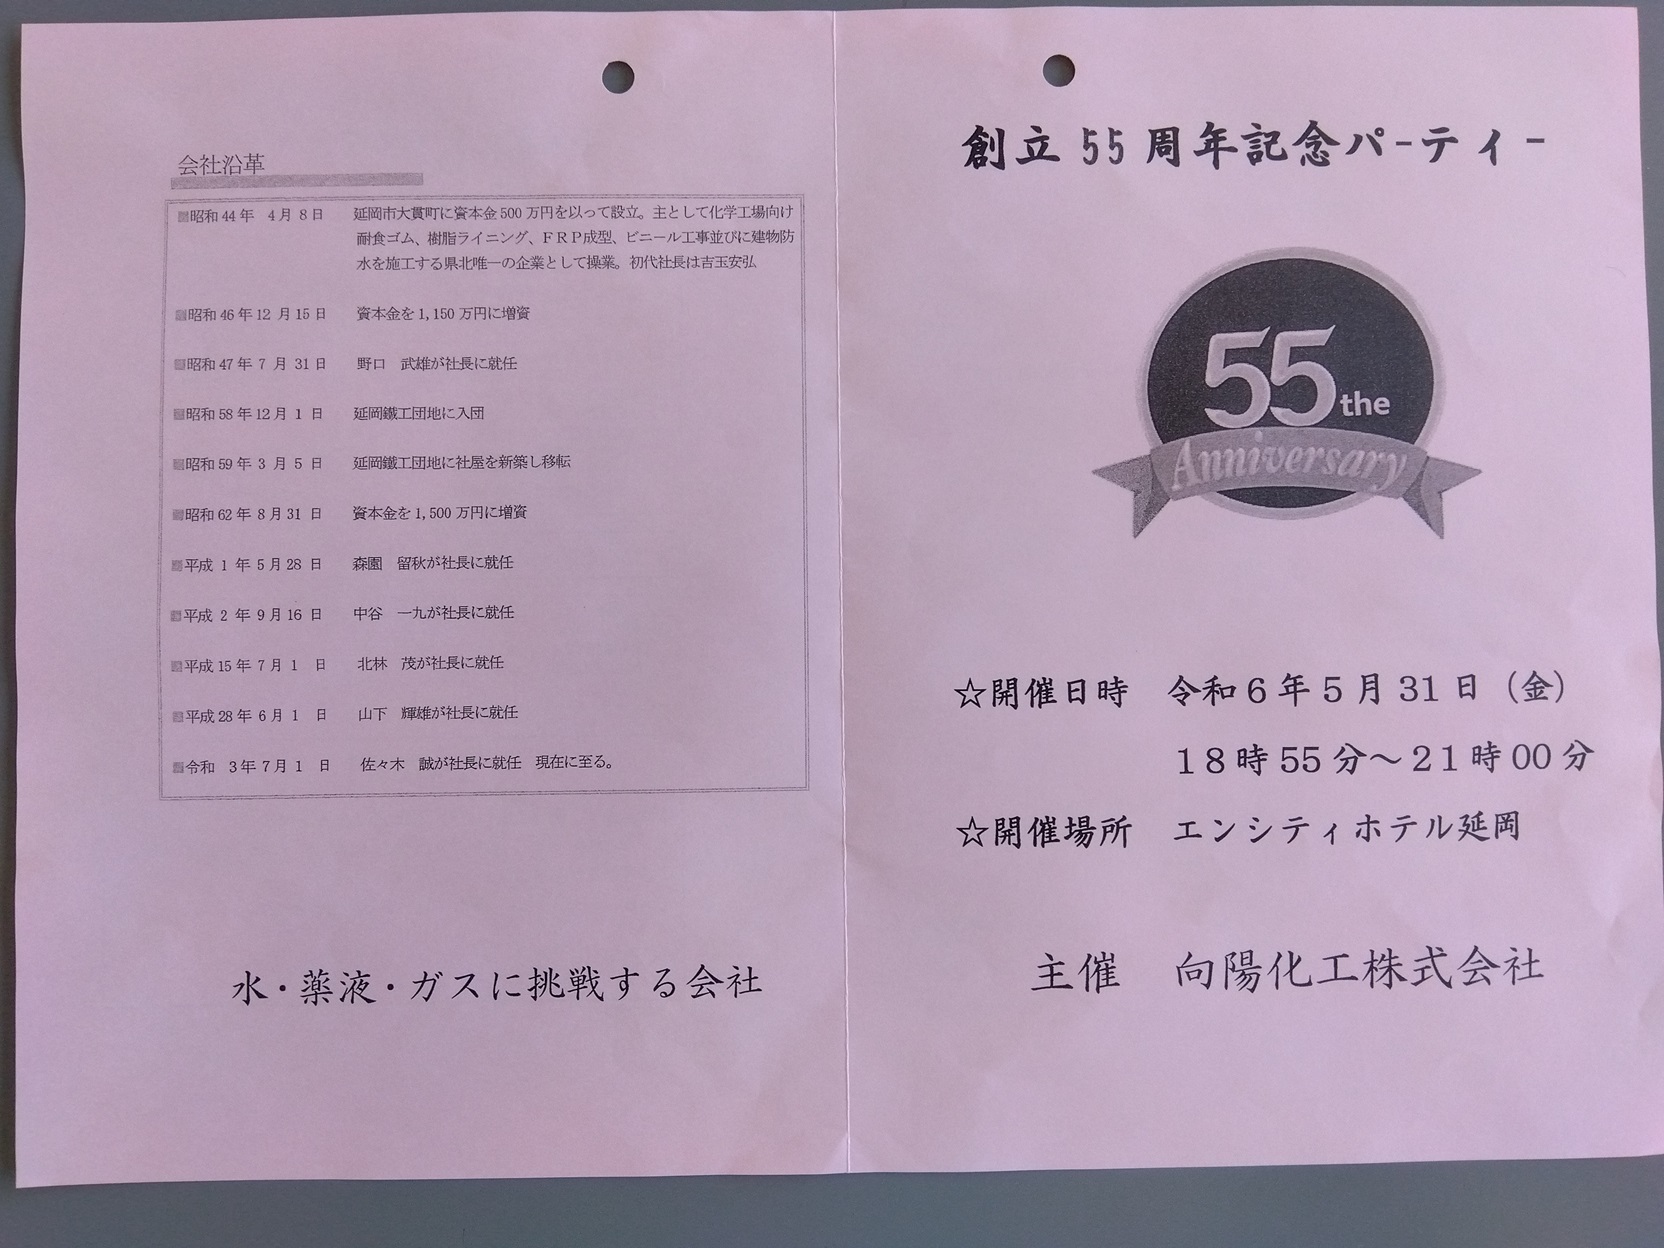 会社沿革
■昭和44年 4月8日 延岡市大貫町に資本金500万円を以って設立。主として化学工場向け
耐食ゴム、樹脂ライニング、ＦＲＰ成型、ビニール工事並びに建物防
水を施工する県北唯一の企業として操業。初代社長は吉玉安弘
■昭和46年12月15日 資本金を1,150万円に増資
■昭和47年7月31日 野口 武雄が社長に就任
■昭和58年12月1日 延岡鐵工団地に入団
■昭和59年3月5日 延岡鐵工団地に社屋を新築し移転
■昭和62年8月31日 資本金を1,500万円に増資
■平成1年5月28日 森園 留秋が社長に就任
■平成2年9月16日 中谷 一九が社長に就任
■平成15年7月1日 北林 茂が社長に就任
■平成28年6月1日 山下 輝雄が社長に就任
■令和 3年7月1日 佐々木 誠が社長に就任 現在に至る。
水・薬液・ガスに挑戦する会社
創立55周年記念パーティー
55the
Anniversary
☆開催日時 令和6年5月31日（金）
18時55分～21時00分
☆開催場所 エンシティホテル延岡
主催 向陽化工株式会社